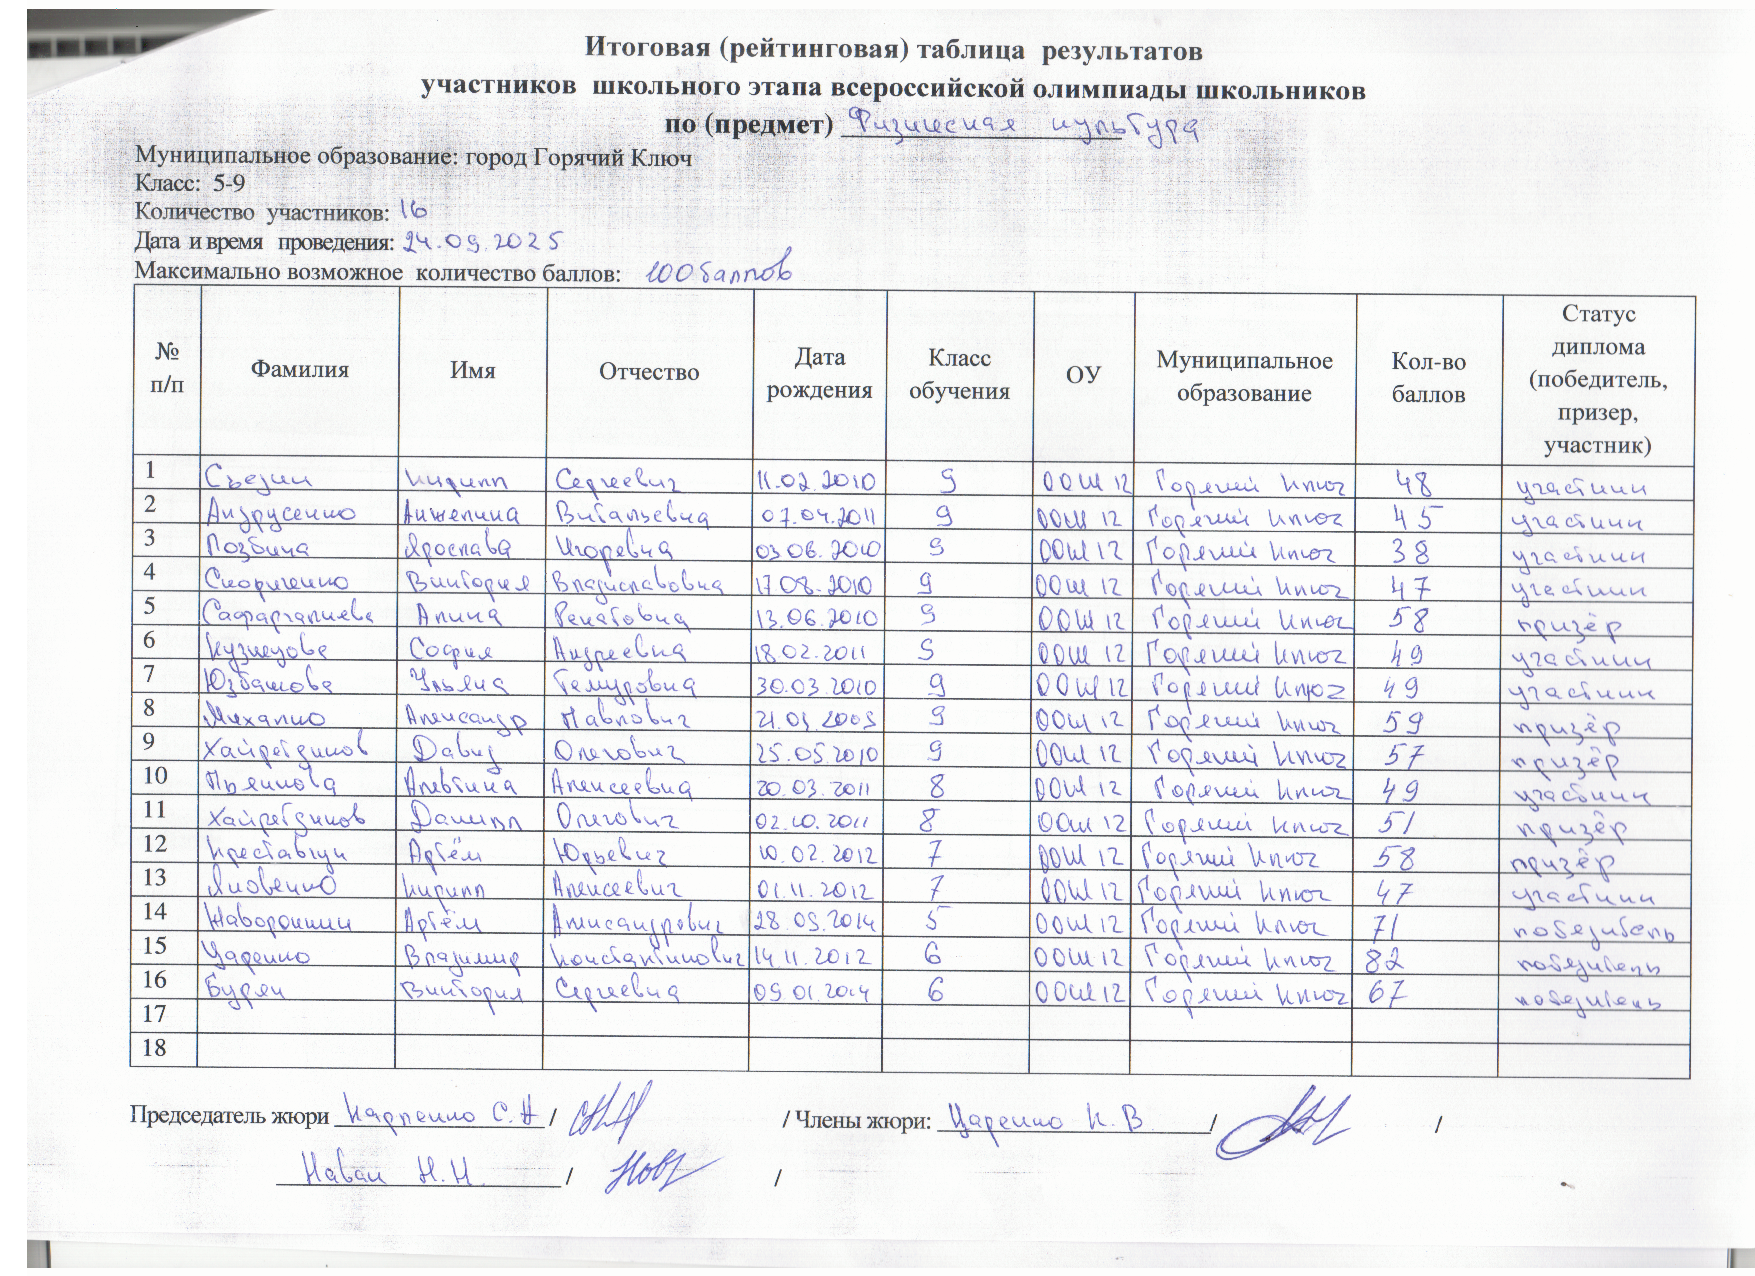 Итоговая (рейтинговая) таблица результатов
участников школьного этапа всероссийской олимпиады школьников
по (предмет) Физическая культура
Муниципальное образование: город Горячий Ключ
Класс: 5-9
Количество участников: 16
Дата и время проведения: 24.09.2025
Максимально возможное количество баллов: 100 баллов
№ п/п Фамилия Имя Отчество Дата рождения Класс обучения ОУ Муниципальное образование Кол-во баллов Статус диплома (победитель, призер, участник)
1 Съезин Кирилл Сергеевич 11.02.2010 9 ООШ 12 Горячий Ключ 48 участник
2 Андрусенко Анжелина Витальевна 07.04.2011 9 ООШ 12 Горячий Ключ 45 участник
3 Лозбина Ярослава Игоревна 03.06.2010 9 ООШ 12 Горячий Ключ 38 участник
4 Скориченко Виктория Владиславовна 17.08.2010 9 ООШ 12 Горячий Ключ 47 участник
5 Сафаргалиева Алина Ренатовна 13.06.2010 9 ООШ 12 Горячий Ключ 58 призёр
6 Кузнецова София Андреевна 18.02.2011 9 ООШ 12 Горячий Ключ 49 участник
7 Юзбашова Ульяна Темуровна 30.03.2010 9 ООШ 12 Горячий Ключ 49 участник
8 Михалко Александр Павлович 21.09.2009 9 ООШ 12 Горячий Ключ 59 призёр
9 Хайретдинов Давид Олегович 25.05.2010 9 ООШ 12 Горячий Ключ 57 призёр
10 Пьянкова Алевтина Алексеевна 20.03.2011 8 ООШ 12 Горячий Ключ 49 участник
11 Хайретдинов Данилл Олегович 02.10.2011 8 ООШ 12 Горячий Ключ 51 призёр
12 Артём Юрьевич 10.02.2012 7 ООШ 12 Горячий Ключ 58 призёр
13 Яковенко Кирилл Алексеевич 01.11.2012 7 ООШ 12 Горячий Ключ 47 участник
14 Жаворонкин Артём Александрович 28.09.2014 5 ООШ 12 Горячий Ключ 71 победитель
15 Царенко Владимир Константинович 14.11.2012 6 ООШ 12 Горячий Ключ 82 победитель
16 Бурян Виктория Сергеевна 09.01.2014 6 ООШ 12 Горячий Ключ 67 победитель
17
18
Председатель жюри Карпенко С.А / / Члены жюри: Царенко К.В. / /
Навал Н.Н. / /